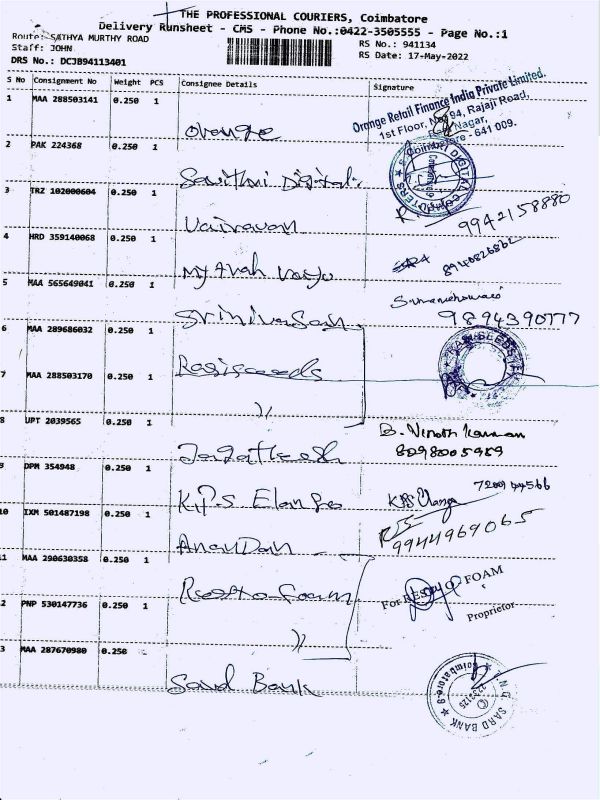 THE PROFESSIONAL COURIERS, Coimbatore
Delivery Runsheet - CMS - Phone No.:0422-3505555 - Page No.:1
Route: SATHYA MURTHY ROAD
RS No.: 941134
Staff: JOHN
RS Date: 17-May-2022
DRS No.: DCJB94113401
S No Consignment No Weight PCS Consignee Details Signature
1 MAA 288503141 0.250 1 Orange
Orange Retail Finance India Private Limited.
1st Floor, 94, Rajaji Road,
Nagar,
Coimbatore - 641 009.
2 PAK 224368 0.250 1 Savithri Digital
DIGITAL COMPUTERS
3 TRZ 102000604 0.250 1 Vairavan
9942158880
4 HRD 359140068 0.250 1
8940826862
5 MAA 565649041 0.250 1 Srinivasan
9894390777
6 MAA 289686032 0.250 1
7 MAA 288503170 0.250 1 〃
8 UPT 2039565 0.250 1 Jagatheesh
B. Vinoth Kannan
8098005989
9 DPM 354948 0.250 1 K.P.S Elango
KPS Elango
10 IXM 501487198 0.250 1 Anandan
9944969065
11 MAA 290630358 0.250 1 Resto foam
For RESTO FOAM
Proprietor
2 PNP 530147736 0.250 1 〃
3 MAA 287670980 0.250 Sard Bank
N.G. SARD BANK
Coimbatore-9